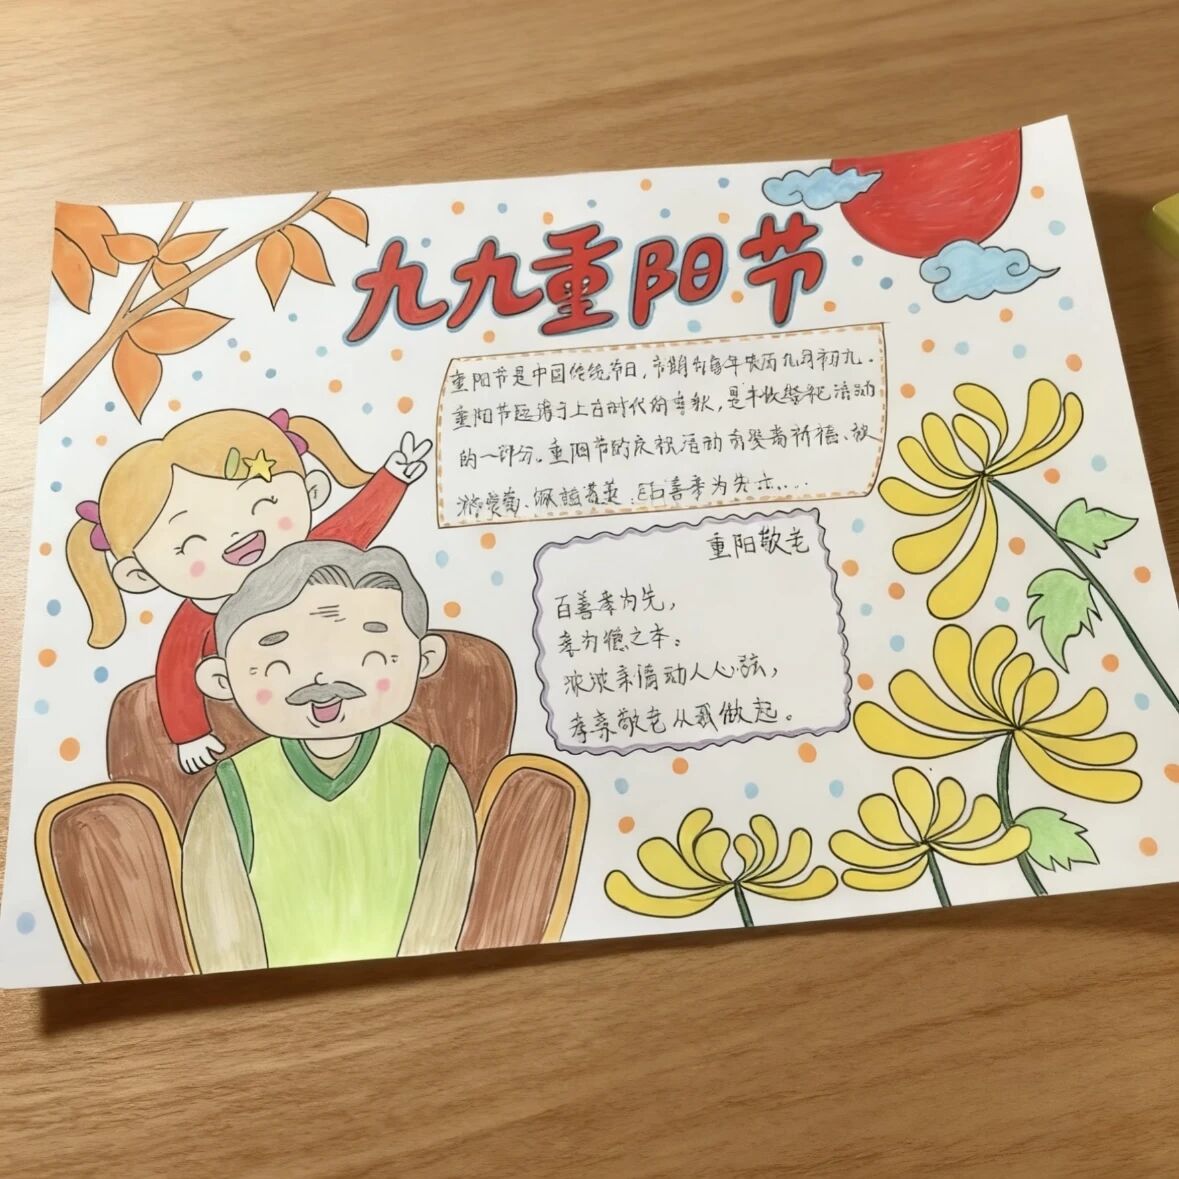 九九重阳节
重阳节是中国传统节日,节期为每年农历九月初九。
重阳节起源于上古时代的季秋,是丰收祭祀活动
的一部分。重阳节的庆祝活动有登高祈福、
百善孝为先
重阳敬老
百善孝为先,
孝为德之本。
浓浓亲情动人心弦,
孝亲敬老从我做起。